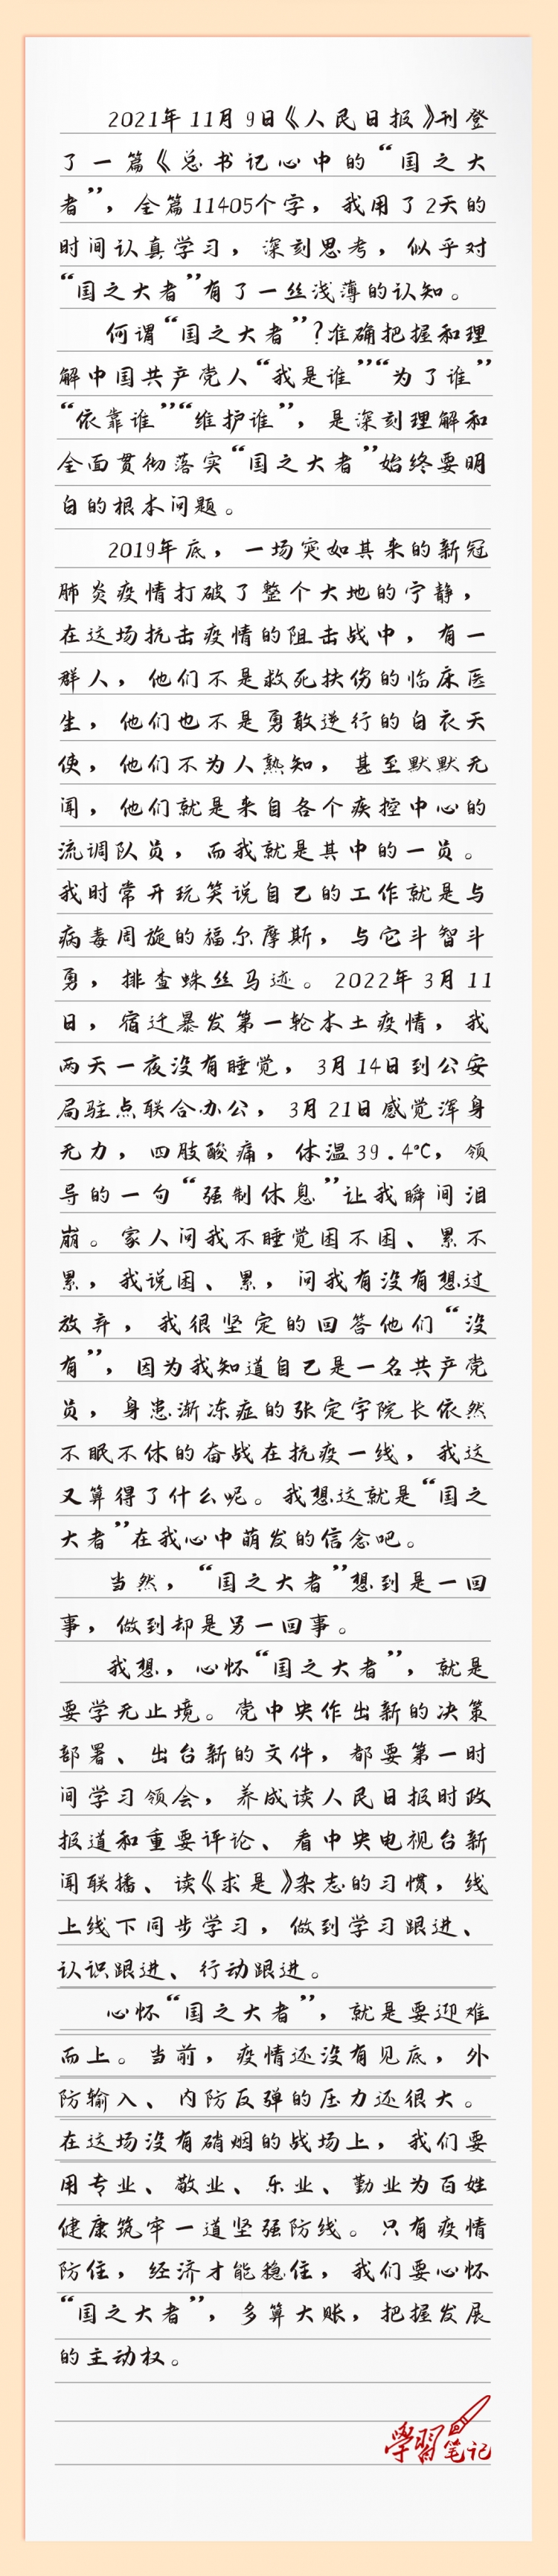 2021年11月9日《人民日报》刊登
了一篇《总书记心中的“国之大
者”，全篇11405个字，我用了2天的
时间认真学习，深刻思考，似乎对
“国之大者”有了一丝浅薄的认知。
何谓“国之大者”？准确把握和理
解中国共产党人“我是谁”“为了谁”
“依靠谁”“维护谁”，是深刻理解和
全面贯彻落实“国之大者”始终要明
白的根本问题。
2019年底，一场突如其来的新冠
肺炎疫情打破了整个大地的宁静，
在这场抗击疫情的阻击战中，有一
群人，他们不是救死扶伤的临床医
生，他们也不是勇敢逆行的白衣天
使，他们不为人熟知，甚至默默无
闻，他们就是来自各个疾控中心的
流调队员，而我就是其中的一员。
我时常开玩笑说自己的工作就是与
病毒周旋的福尔摩斯，与它斗智斗
勇，排查蛛丝马迹。2022年3月11
日，宿迁暴发第一轮本土疫情，我
两天一夜没有睡觉，3月14日到公安
局驻点联合办公，3月21日感觉浑身
无力，四肢酸痛，体温39.4℃，领
导的一句“强制休息”让我瞬间泪
崩。家人问我不睡觉困不困、累不
累，我说困、累，问我有没有想过
放弃，我很坚定的回答他们“没
有”，因为我知道自己是一名共产党
员，身患渐冻症的张定宇院长依然
不眠不休的奋战在抗疫一线，我这
又算得了什么呢。我想这就是“国之
大者”在我心中萌发的信念吧。
当然，“国之大者”想到是一回
事，做到却是另一回事。
我想，心怀“国之大者”，就是
要学无止境。党中央作出新的决策
部署、出台新的文件，都要第一时
间学习领会，养成读人民日报时政
报道和重要评论、看中央电视台新
闻联播、读《求是》杂志的习惯，线
上线下同步学习，做到学习跟进、
认识跟进、行动跟进。
心怀“国之大者”，就是要迎难
而上。当前，疫情还没有见底，外
防输入、内防反弹的压力还很大。
在这场没有硝烟的战场上，我们要
用专业、敬业、乐业、勤业为百姓
健康筑牢一道坚强防线。只有疫情
防住，经济才能稳住，我们要心怀
“国之大者”，多算大账，把握发展
的主动权。
學習笔记